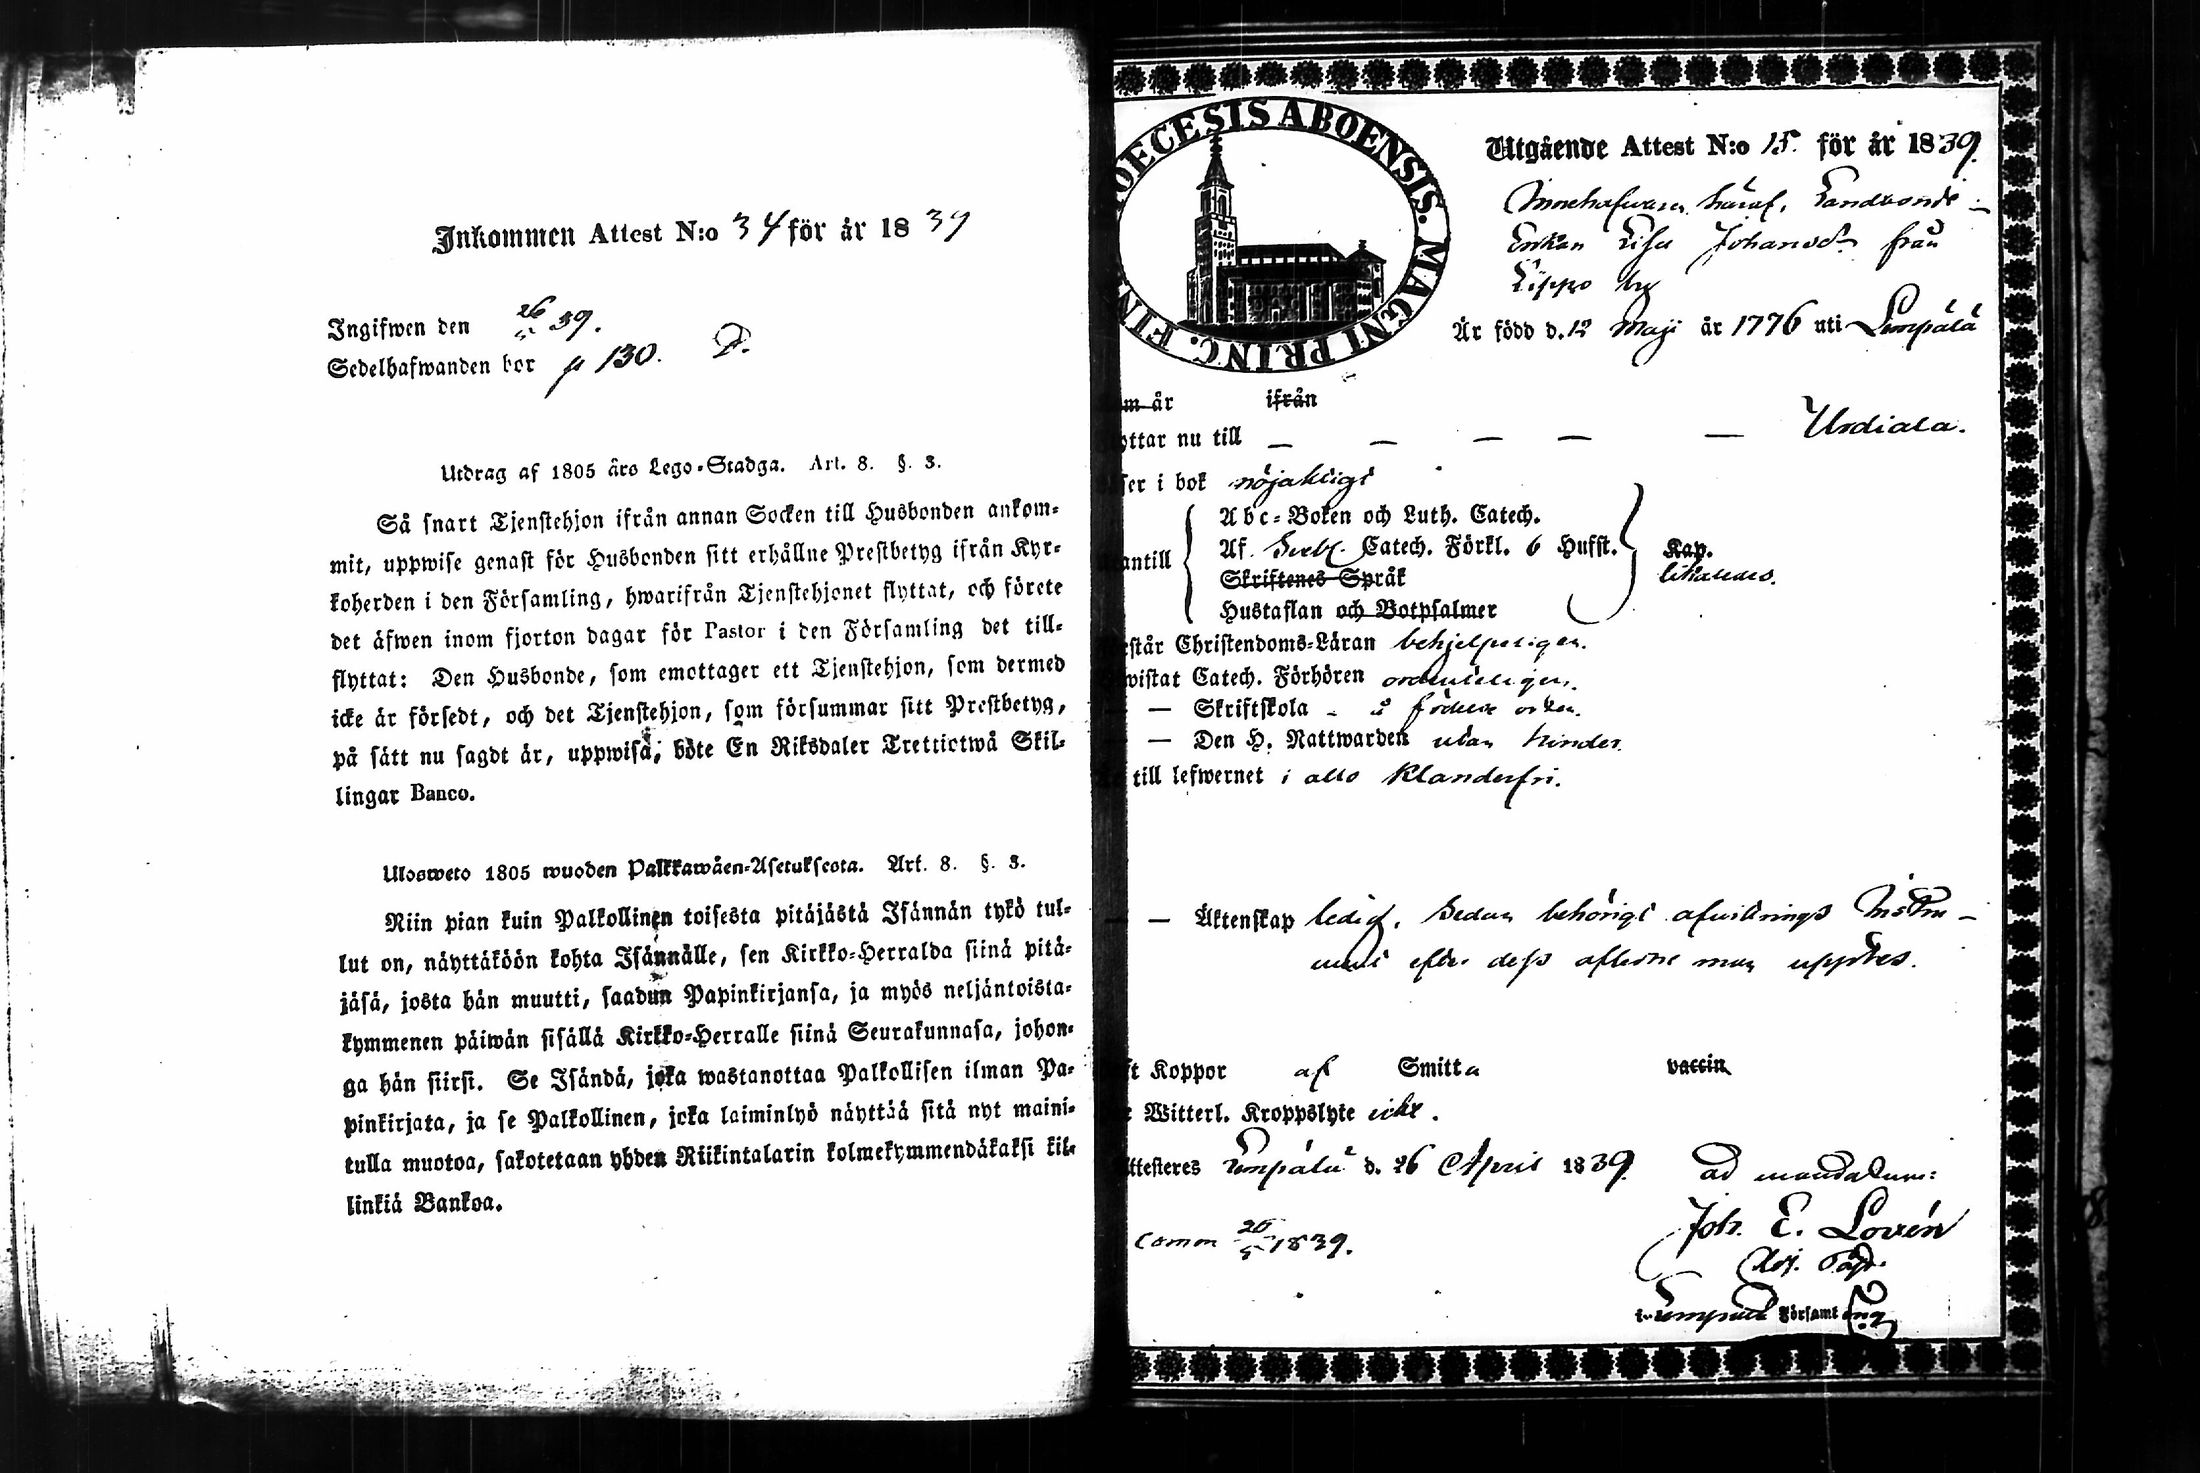 Inkommen Attest N:o 34 för år 1839
Ingifwen den 26/5 39.
Sedelhafwanden bor p 130. D.
Utdrag af 1805 års Lego-Stadga. Art. 8. §. 3.
Så snart Tjenstehjon ifrån annan Socken till Husbonden ankom-
mit, uppwise genast för Husbonden sitt erhållne Prestbetyg ifrån Kyr-
koherden i den Församling, hwarifrån Tjenstehjonet flyttat, och förete
det äfwen inom fjorton dagar för Pastor i den Församling det till-
flyttat: Den Husbonde, som emottager ett Tjenstehjon, som dermed
icke är försedt, och det Tjenstehjon, som försummar sitt Prestbetyg,
på sätt nu sagdt är, uppwisa, böte En Riksdaler Trettiotwå Skil-
lingar Banco.
Ulosweto 1805 wuoden Palkkawäen-Asetuksesta. Art. 8. §. 3.
Niin pian kuin Palkollinen toisesta pitäjästä Isännän tykö tul-
lut on, näyttäköön kohta Isännälle, sen Kirkko-Herralda siinä pitä-
jäsä, josta hän muutti, saadun Papinkirjansa, ja myös neljäntoista-
kymmenen päiwän sisällä Kirkko-Herralle siinä Seurakunnasa, johon-
ga hän siirsi. Se Isändä, joka wastanottaa Palkollisen ilman Pa-
pinkirjata, ja se Palkollinen, joka laiminlyö näyttää sitä nyt maini-
tulla muotoa, sakotetaan yhden Riikintalarin kolmekymmendäkaksi kil-
linkiä Bankoa.
OECESIS ABOENSIS. MAGNI PRINC. FIN
Utgående Attest N:o 15. för år 1839.
Innehafwaren häraf, Landbonde-
Enkan Lisa Johansdr från
Lippo by
Är född d. 12 Maji år 1776 uti Lempälä
om år ifrån
yttar nu till — — — — — Urdiala.
ser i bok nöjaktigt
Abc-Boken och Luth. Catech.
antill Af Sveb. Catech. Förkl. 6 Hufst. Kap.
Skriftenes Språk likaledes.
Hustaflan och Botpsalmer
står Christendoms-Läran behjelpeligen.
wistat Catech. Förhören ordenteligen.
— Skriftskola å födelse orten.
— Den H. Nattwarden utan hinder.
till lefwernet i allo klanderfri.
— — Äktenskap ledig, sedan behörigt afwittrings Instru-
ment efter dess aflidne man uppstes.
ft Koppor af Smitta vaccin
Witterl. Kroppslyte icke.
ttesteres Lempälä d. 26 April 1839. ad mandatum:
Joh. E. Lovén
Comm 26/5 1839.
Adj. Past.
i Lempälä Församling